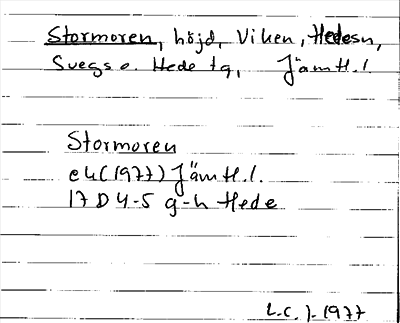 Stormoren, höjd, Viken, Hedesn,
Svegs o. Hede tg, Jämtl. l.
Stormoren
ek (1977) Jämtl. l.
17 D 4-5 g-h Hede
L.C.J. 1977